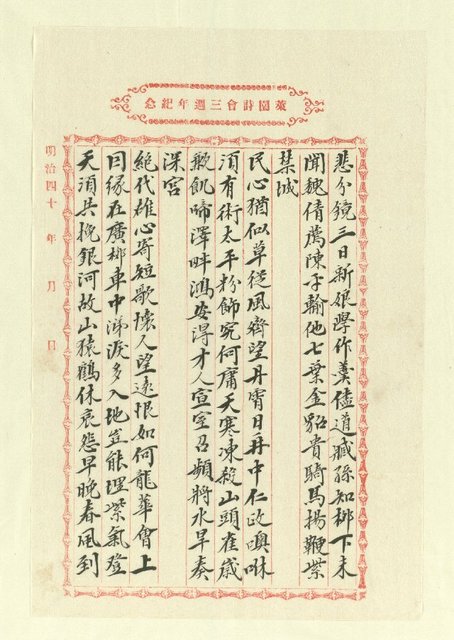 萊園詩會三週年紀念
悲分鏡三日新娘學作羹儘道臧孫知柳下未
聞魏倩薦陳平輸他七葉金貂貴騎馬揚鞭紫
禁城
民心猶似草從風齊望丹霄日再中仁政噢咻
須有術太平粉飾究何庸天寒凍殺山頭雀歲
歉飢啼澤畔鴻安得才人宣室召頻將水旱奏
深宮
絕代雄心寄短歌懷人望遠恨如何龍華會上
因緣在廣柳車中涕淚多入地豈能埋紫氣登
天須共挽銀河故山猿鶴休哀怨早晚春風到
明治四十年 月 日